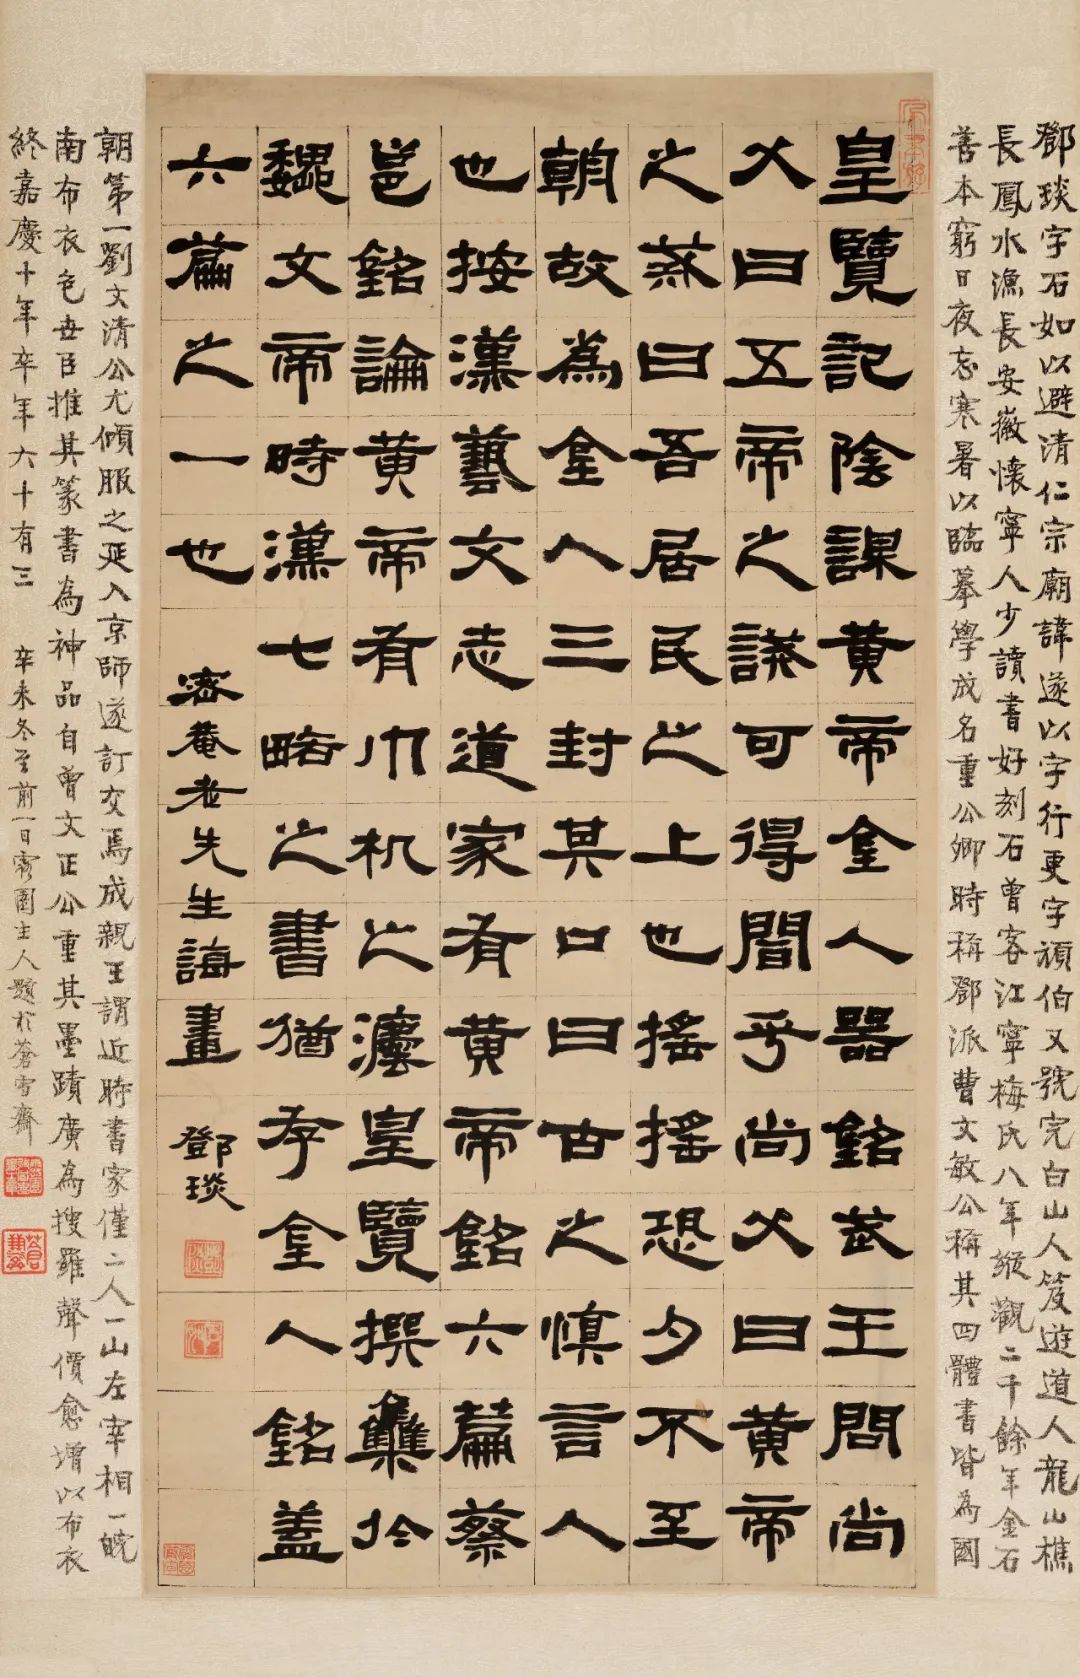 鄧琰字石如以避清仁宗廟諱遂以字行更字頑伯又號完白山人笈遊道人龍山樵
長鳳水漁長安徽懷寧人少讀書好刻石曾客江寧梅氏八年縱觀二千餘年金石
善本窮日夜忘寒暑以臨摹學成名重公卿時稱鄧派曹文敏公稱其四體書皆為國
皇覽記陰謀黃帝金人器銘武王問尚
父曰五帝之誡可得聞乎尚父曰黃帝
之戒曰吾居民之上也搖搖恐夕不至
朝故為金人三封其口曰古之慎言人
也按漢藝文志道家有黃帝銘六篇蔡
邕銘論黃帝有巾机之灋皇覽撰集於
魏文帝時漢七略之書猶存金人銘蓋
六篇之一也
濟菴老先生誨畫 鄧琰
朝第一劉文清公尤傾服之延入京師遂訂交焉成親王謂近時書家僅二人一山左宰相一皖
南布衣包世臣推其篆書為神品自曾文正公重其墨蹟廣為搜羅聲價愈增以布衣
終嘉慶十年卒年六十有三 辛未冬至前一日園主人題於蒼雪齋